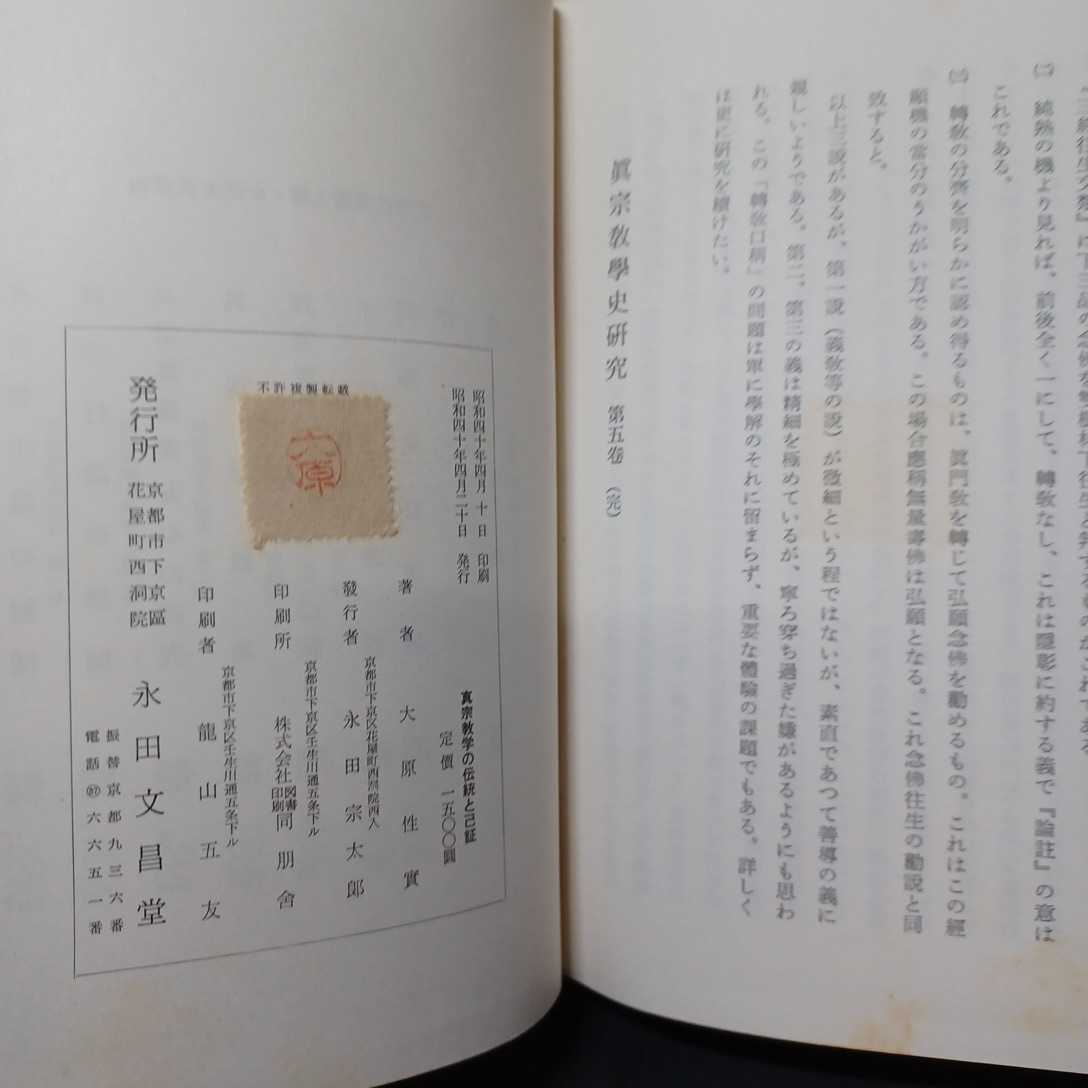 ㈡　純熟の機より見れば、前後全く一にして、轉敎なし、これは隱彰に約する義で『論註』の意は
これである。
㈢　轉敎の分齊を明らかに認め得るものは、眞門敎を轉じて弘願念佛を勸めるもの。これはこの經
願機の當分のうかがい方である。この場合應稱無量壽佛は弘願となる。これ念佛往生の勸説と同
致すると。
以上三説があるが、第一説（義敎等の説）が微細という程ではないが、素直であつて善導の義に
親しいようである。第二、第三の義は精細を極めているが、寧ろ穿ち過ぎた嫌があるようにも思わ
れる。この「轉敎口稱」の問題は單に學解のそれに留まらず、重要な體驗の課題でもある。詳しく
は更に研究を續けたい。
眞宗敎學史研究　第五卷（完）
昭和四十年四月　十　日　印刷
昭和四十年四月二十日　発行
不許複製転載
大原
真宗教学の伝統と己証
定價　一五〇〇圓
著者　大原性實
京都市下京区花屋町西洞院西入
發行者　永田宗太郎
京都市下京区壬生川通五条下ル
印刷所　株式会社図書印刷同朋舎
京都市下京区壬生川通五条下ル
印刷者　龍山五友
発行所　京都市下京區花屋町西洞院　永田文昌堂
振替京都九三六番
電話㊲六六五一番